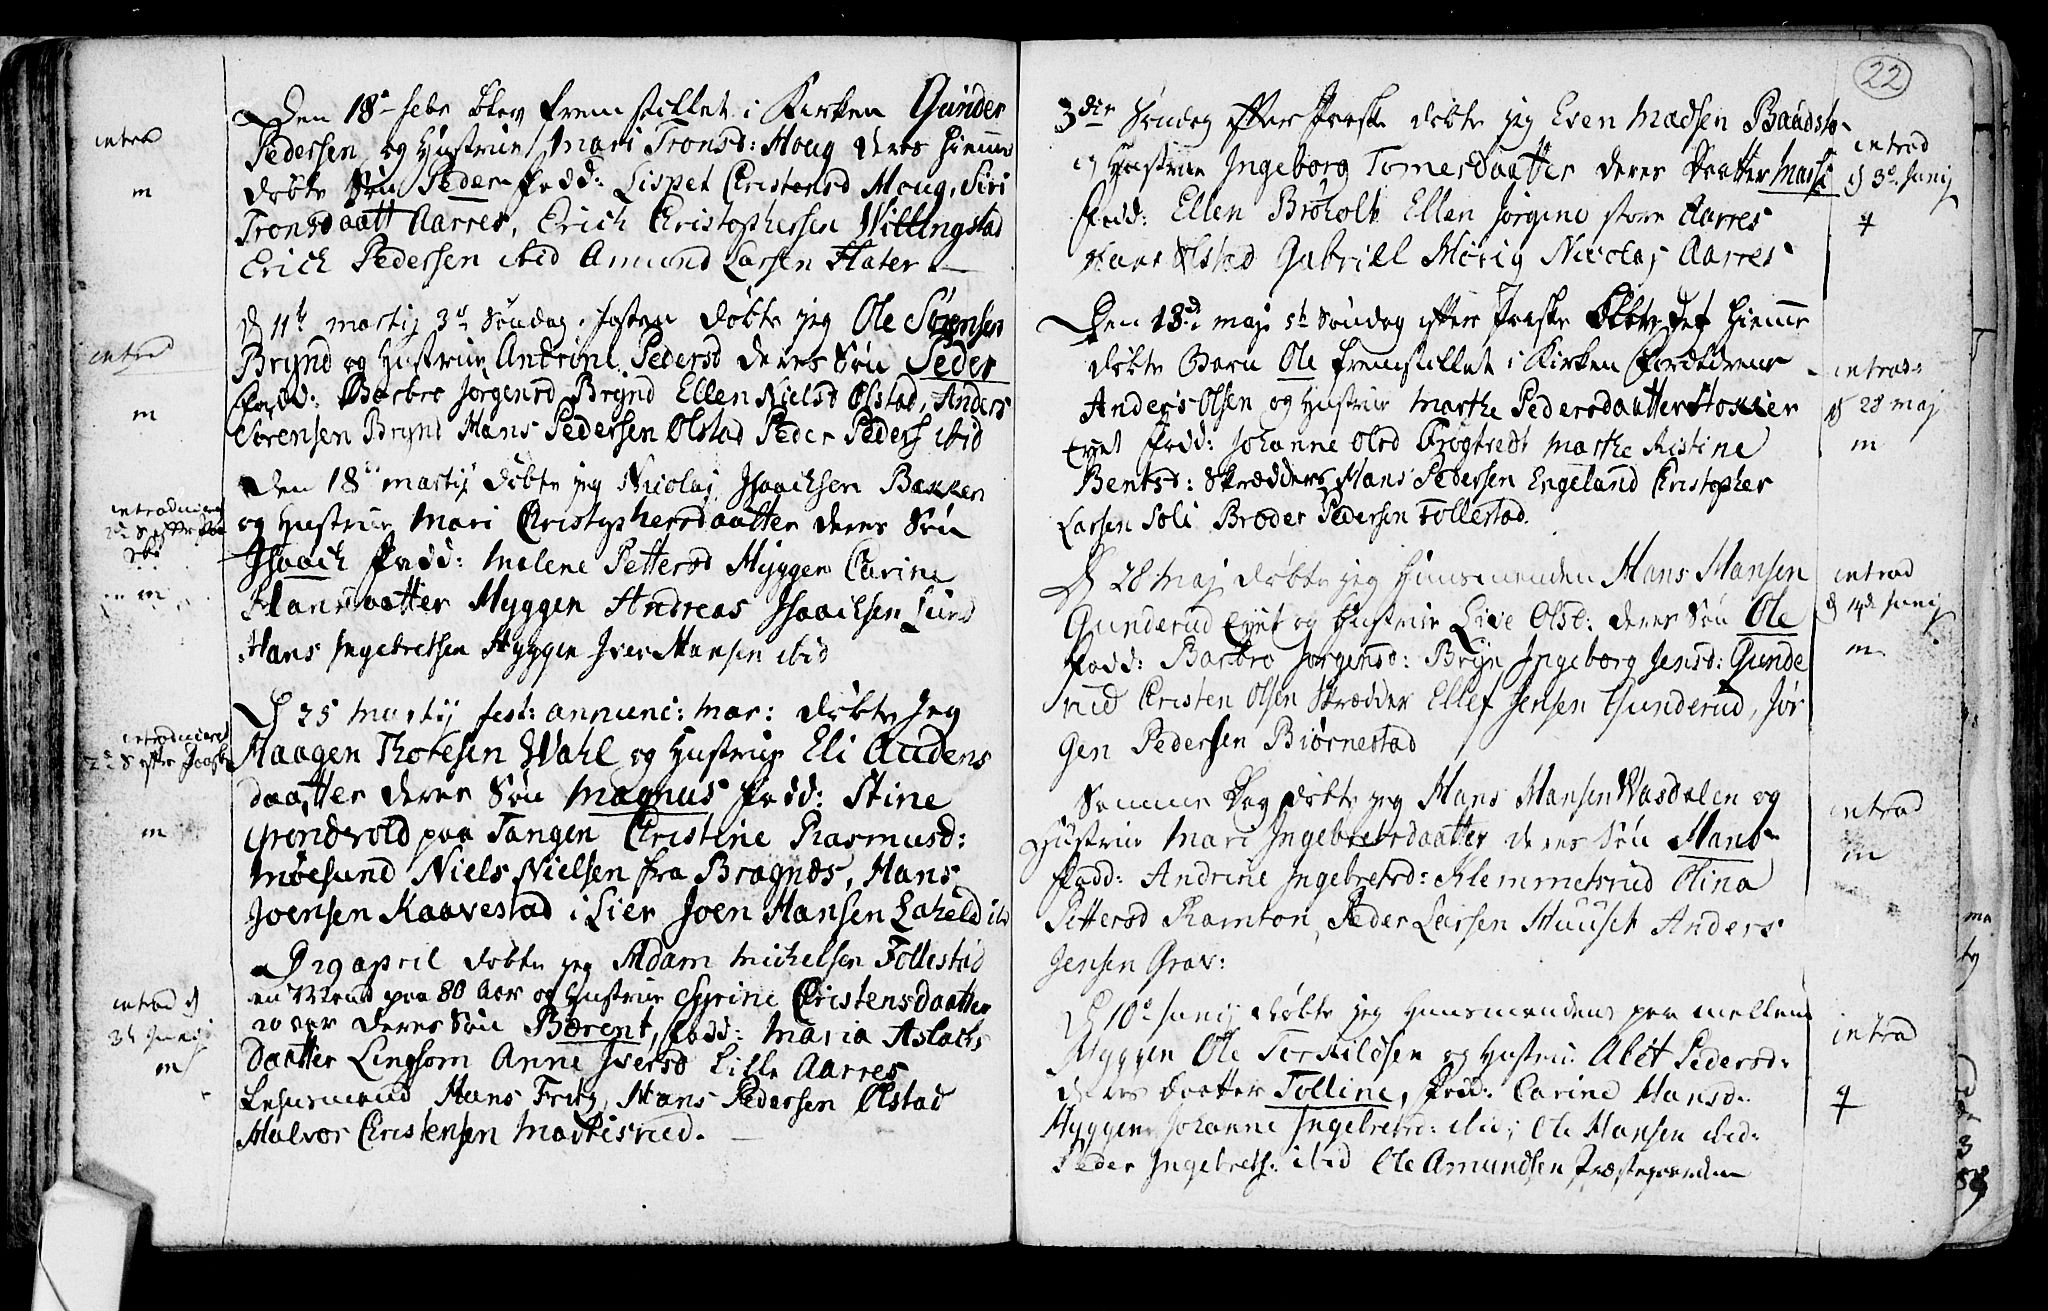 Den 18de febr blev fremstillet i Kirken Gunder
Pedersen og Hustrue Mari Tronsd: Houg deres hiemme
døbte Søn Peder Fadd: Lispet Christensd Houg, Siri
Tronsdaatt Aarres, Erich Christophersen Willingstad
Erich Pedersen ibid Amund Larsen Flater
introd
m
d 11te martij 3de Søndag i fasten døbte jeg Ole Sørensen
Brynd og Hustrue Andrine Pedersd deres Søn Peder
Fadd: Barbro Jørgensd Brynd Ellen Nielsd Olstad, Anders
Sørensen Brynd Hans Pedersen Olstad Peder Peders ibid
introd
m
Den 18de martij døbte jeg Nicolaj Isaachsen Bakken
og Hustrue Mari Christophersdaatter deres Søn
Isaach Fadd: Melene Pettersd Hyggen Carine
Hansdaatter Hyggen Andreas Isaachsen Lund
Hans Ingebretsen Hyggen Iver Hansen ibid
introduceret
2den S efter
m
D 25 martij fest: annunc: mar: døbte Jeg
Haagen Thoresen Wahl og Hustrue Eli Audens
daatter deres Søn Magnus Fadd: Stine
Grøndvold paa Tangen Christine Rasmusd:
Møesund Niels Nielsen fra Bragnæs, Hans
Joensen Kaavestad i Lier Joen Hansen Laheld ibd
introduceret
2den S efter Paaske
m
D 29 april døbte jeg Adam Michelsen Follestad
en Mand paa 80 Aar og Hustrue Syrine Christensdaatter
20 aar deres Søn Bærent, Fadd: Maria Aslachs
daatter Lingsom Anne Iversd Lille Aarres
Lensmand Hans Fritz, Hans Pedersen Olstad
Halvor Christensen Mackisrud.
introd d
3de Junij
m
22
3die Søndag efter Paaske døbte jeg Even Madsen Baadstø
og Hustrue Ingeborg Tomesdaatter deres Daatter Massi
Fadd: Ellen Brøholt Ellen Jørgine store Aarres
Hans Olstad Gabriel Mørig Nicolaj Aarres
introd
d 3de Junij
q
Den 13de maj 5te Søndag efter Paaske blev det hiemme
døbte Barn Ole fremstillet i Kirken Forældrene
Anders Olsen og Hustrue Marthe Pedersdaatter Stokker
eyet Fadd: Johanne Olsd Frogtvedt Marthe Kistine
Bentsd: Skrædder Hans Pedersen Engeland Christopher
Larsen Soli Brøder Pedersen Follestad.
introd
d 28 maj
m
D 28 maj døbte jeg Huusmanden Hans Hansen
Gunderud Eyet og Hustrue Live Olsd: deres Søn Ole
Fadd: Barbro Jørgensd: Bryn Ingeborg Jensd: Gunde
rud Cristen Olsen Skrædder Ellef Jensen Gunderud, Jør
gen Pedersen Biørnestad
introd
d 14de Junij
m
Samme Dag døbte jeg Hans Hansen Wasdalen og
Hustrue Mari Ingebretsdaatter deres Søn Hans
Fadd: Andrine Ingebretsd: Klemmetsrud Olina
Pettersd Ramton, Peder Larsen Huuset Anders
Jensen Grav:
introd
m
D 10de Junij døbte jeg Huusmanden paa mellem
Hyggen Ole Terkildsen og Hustru: Abet Pedersd:
deres Daatter Tolline, Fadd: Carine Hansd:
Hyggen Johanne Ingebretsd: ibid; Ole Hansen ibid:
Peder Ingebrets: ibid Ole Amundsen Præstegaarden
introd
q